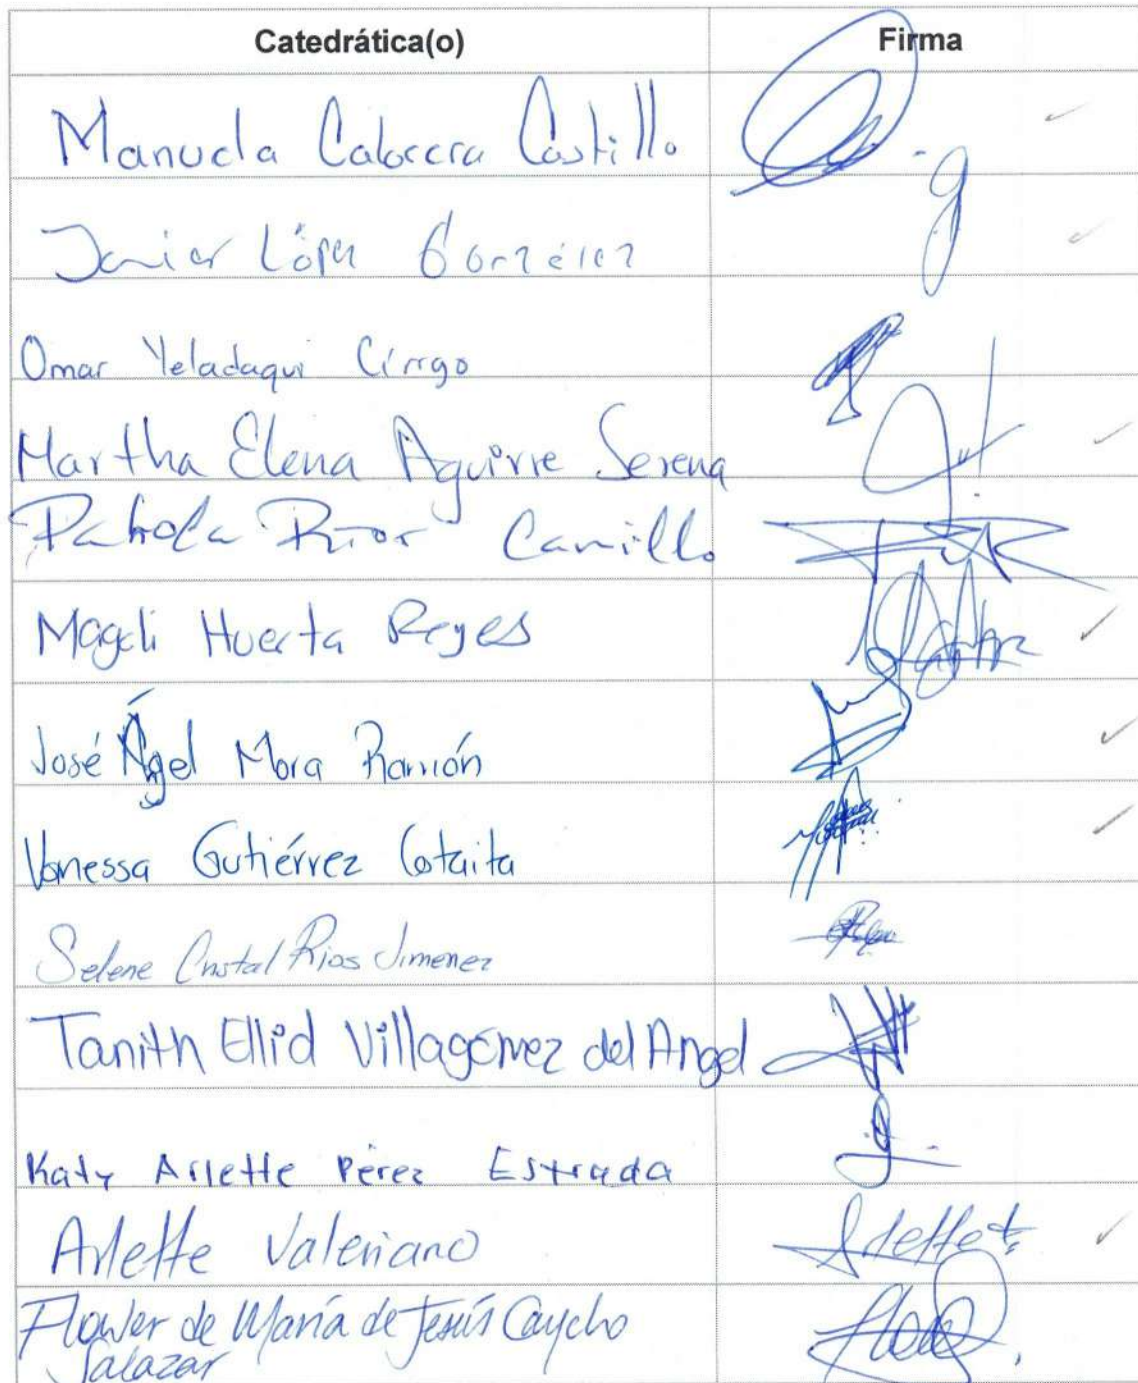 Catedrática(o) Firma
Manuela Cabrera Castillo
Javier López González
Omar Yeladaqui Cirigo
Martha Elena Aguirre Serena
Ríos Carrillo
Magali Huerta Reyes
José Ángel Mora Ramón
Vanessa Gutiérrez Cotaita
Selene Cristal Rios Jimenez
Tanith Ellid Villagómez del Angel
Katy Arlette Pérez Estrada
Arlette Valeriano Arlette
Flower de María de Jesús Caycho
Salazar